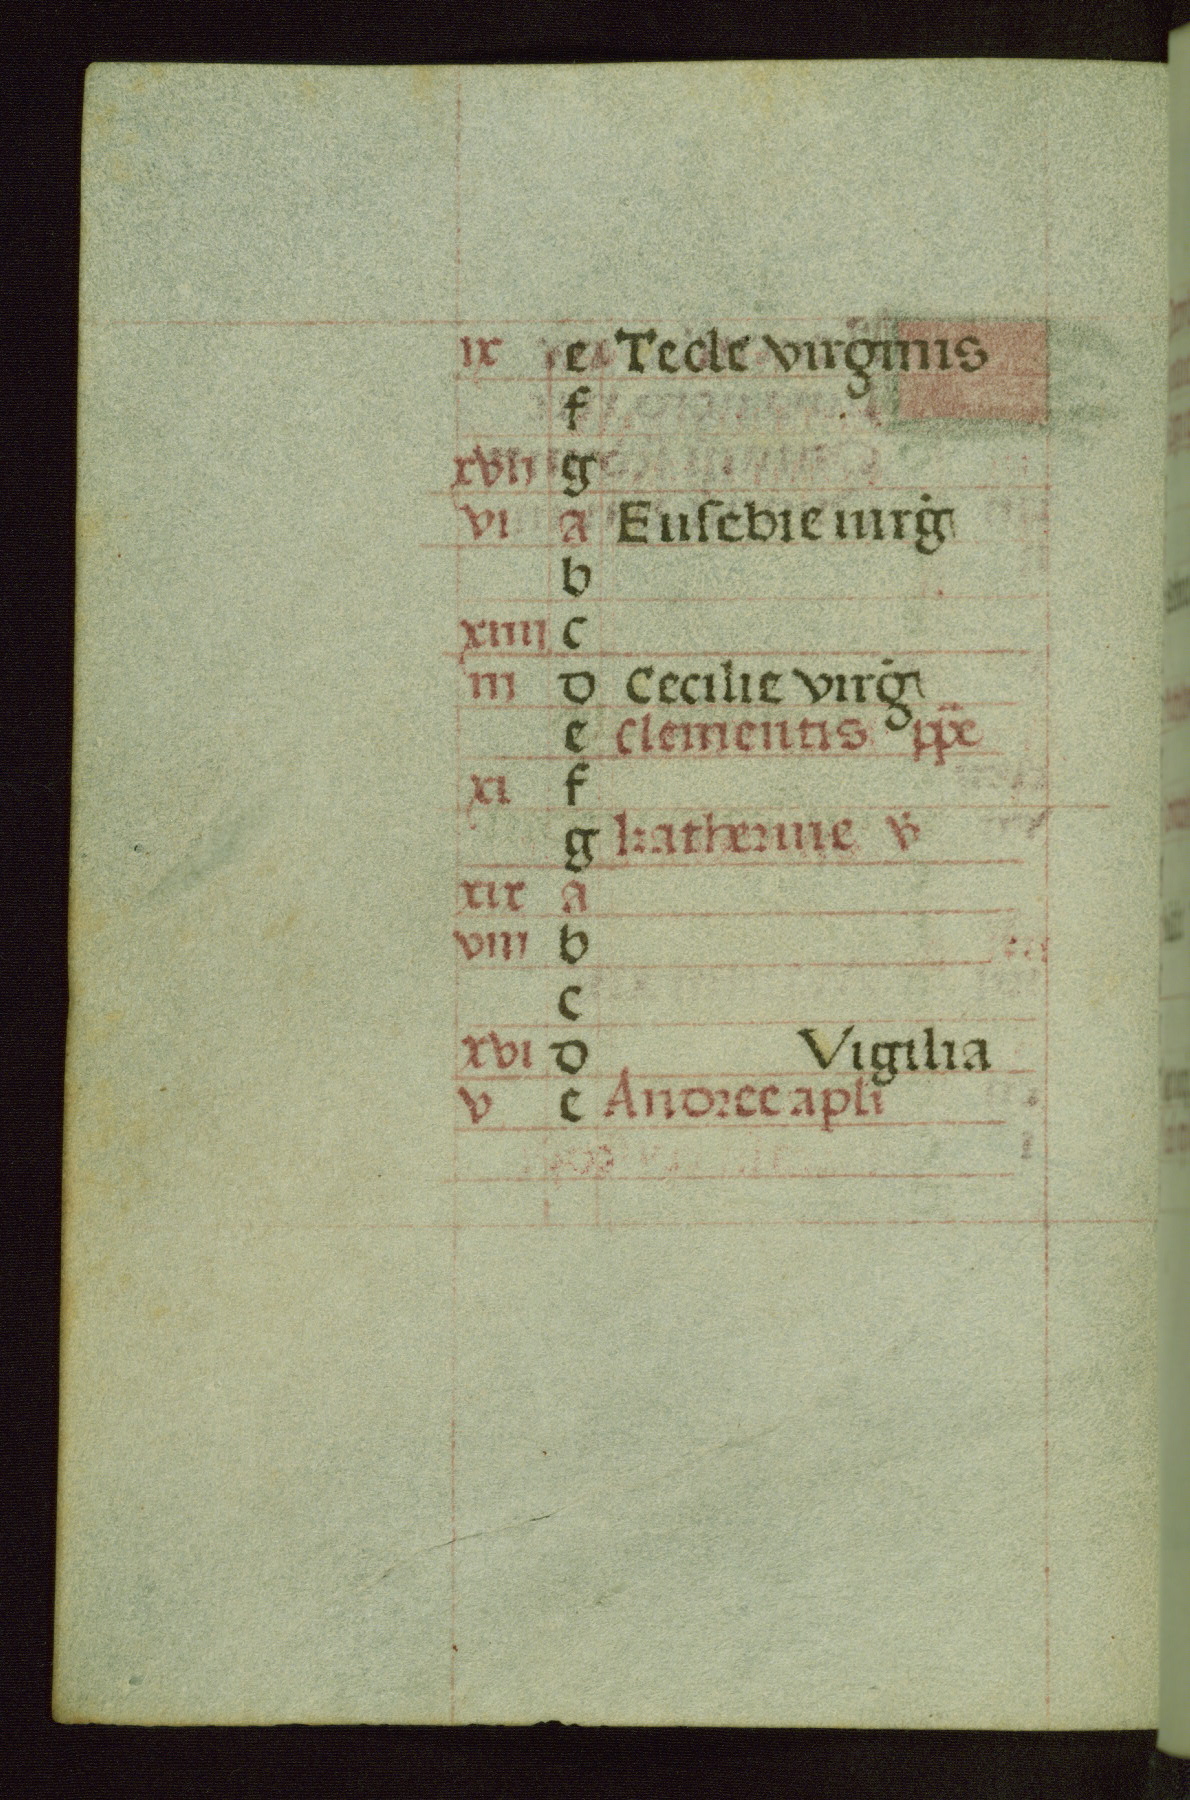 ix e Tecle virginis
f
xvii g
vi a Eusebie uirg
b
xiiii c
iii d Cecilie virg
e Clementis ppe
xi f
g katherine v
xix a
viii b
c
xvi d Vigilia
v e Andree apli